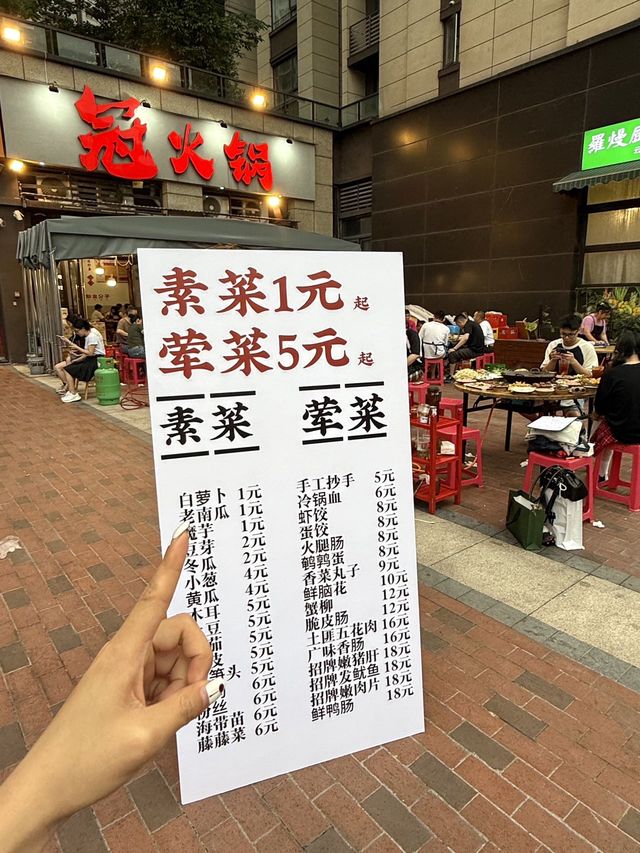 冠火锅
羅熳
素菜1元起
荤菜5元起
素菜
荤菜
白萝卜 1元
老南瓜 1元
魔芋 1元
豆芽 2元
冬瓜 2元
小葱 4元
黄瓜 4元
木耳 5元
豆 5元
茄 5元
皮 5元
头 5元
6元
粉丝 6元
海带苗 6元
藤藤菜 6元
手工抄手 5元
冷锅血 6元
虾饺 8元
蛋饺 8元
火腿肠 8元
鹌鹑蛋 8元
香菜丸子 9元
鲜脑花 10元
蟹柳 12元
脆皮肠 12元
土匪五花肉 16元
广味香肠 16元
招牌嫩猪肝 18元
招牌发鱿鱼 18元
招牌嫩肉片 18元
鲜鸭肠 18元